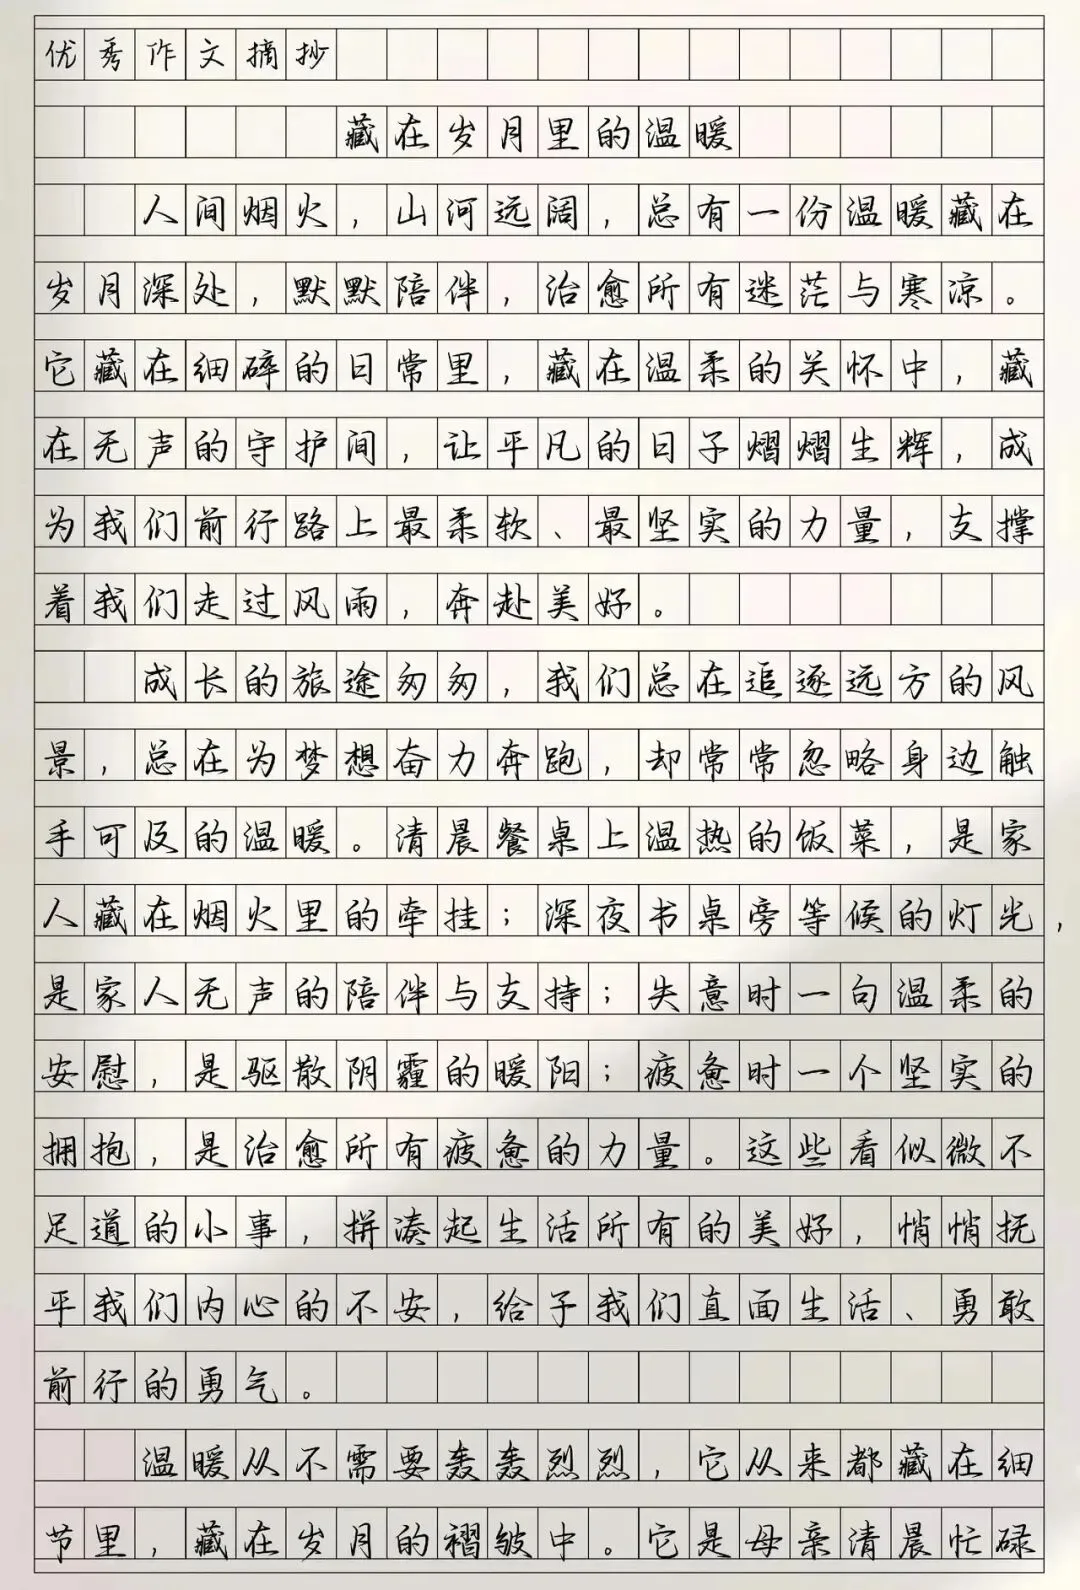 优秀作文摘抄
藏在岁月里的温暖
人间烟火，山河远阔，总有一份温暖藏在
岁月深处，默默陪伴，治愈所有迷茫与寒凉。
它藏在细碎的日常里，藏在温柔的关怀中，藏
在无声的守护间，让平凡的日子熠熠生辉，成
为我们前行路上最柔软、最坚实的力量，支撑
着我们走过风雨，奔赴美好。
成长的旅途匆匆，我们总在追逐远方的风
景，总在为梦想奋力奔跑，却常常忽略身边触
手可及的温暖。清晨餐桌上温热的饭菜，是家
人藏在烟火里的牵挂；深夜书桌旁等候的灯光，
是家人无声的陪伴与支持；失意时一句温柔的
安慰，是驱散阴霾的暖阳；疲惫时一个坚实的
拥抱，是治愈所有疲惫的力量。这些看似微不
足道的小事，拼凑起生活所有的美好，悄悄抚
平我们内心的不安，给予我们直面生活、勇敢
前行的勇气。
温暖从不需要轰轰烈烈，它从来都藏在细
节里，藏在岁月的褶皱中。它是母亲清晨忙碌